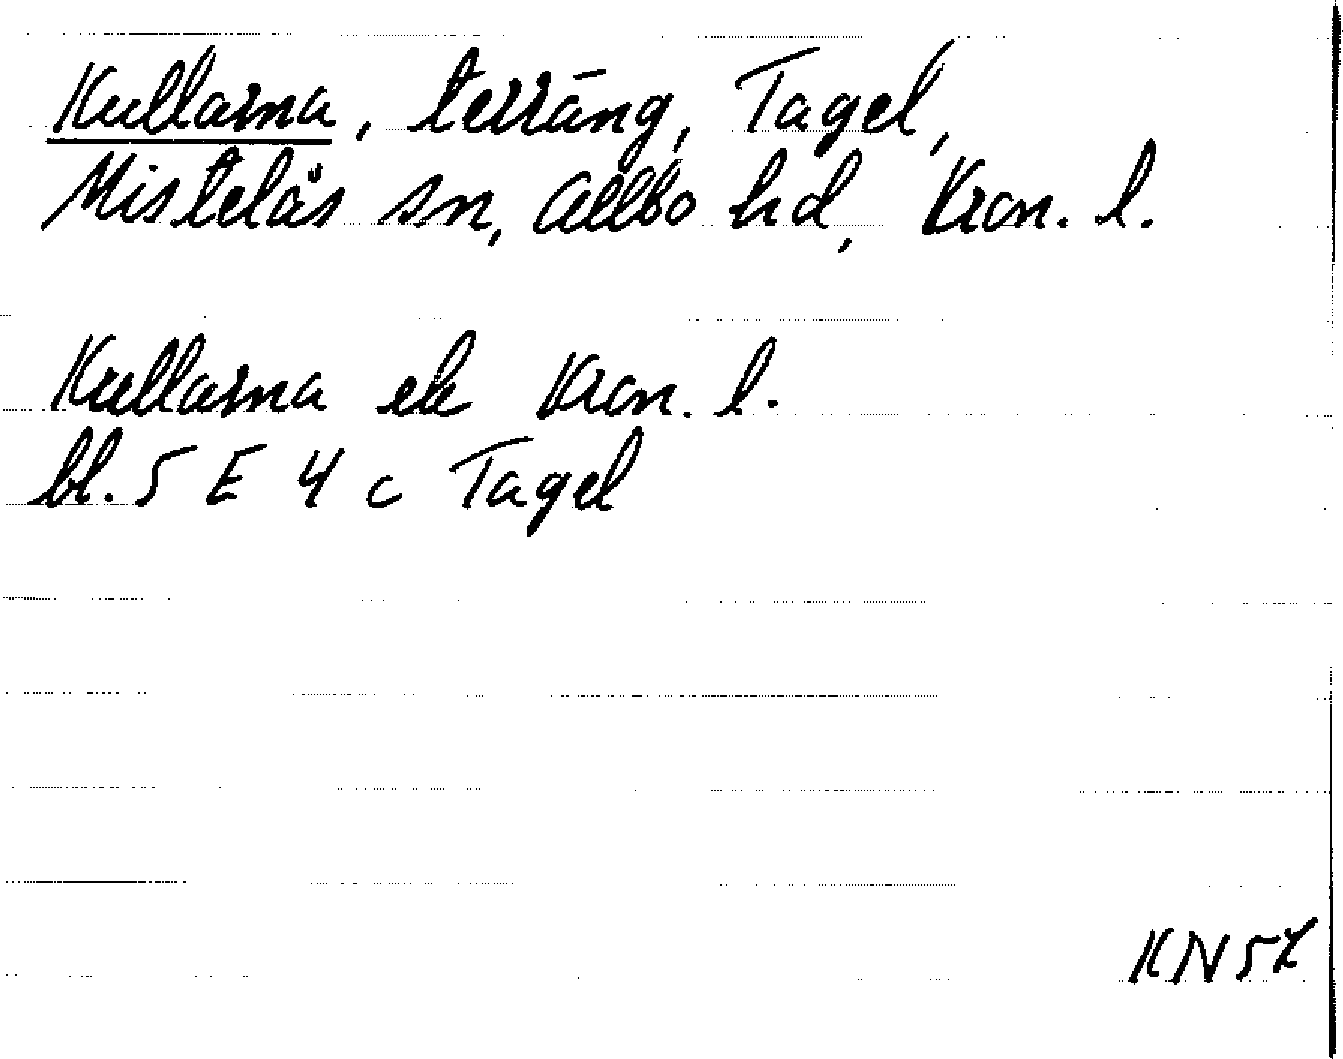 Kullarna, terräng, Tagel,
Mistelås sn, Allbo hd, Kron. l.
Kullarna ek Kron. l.
bl. 5 E 4 c Tagel